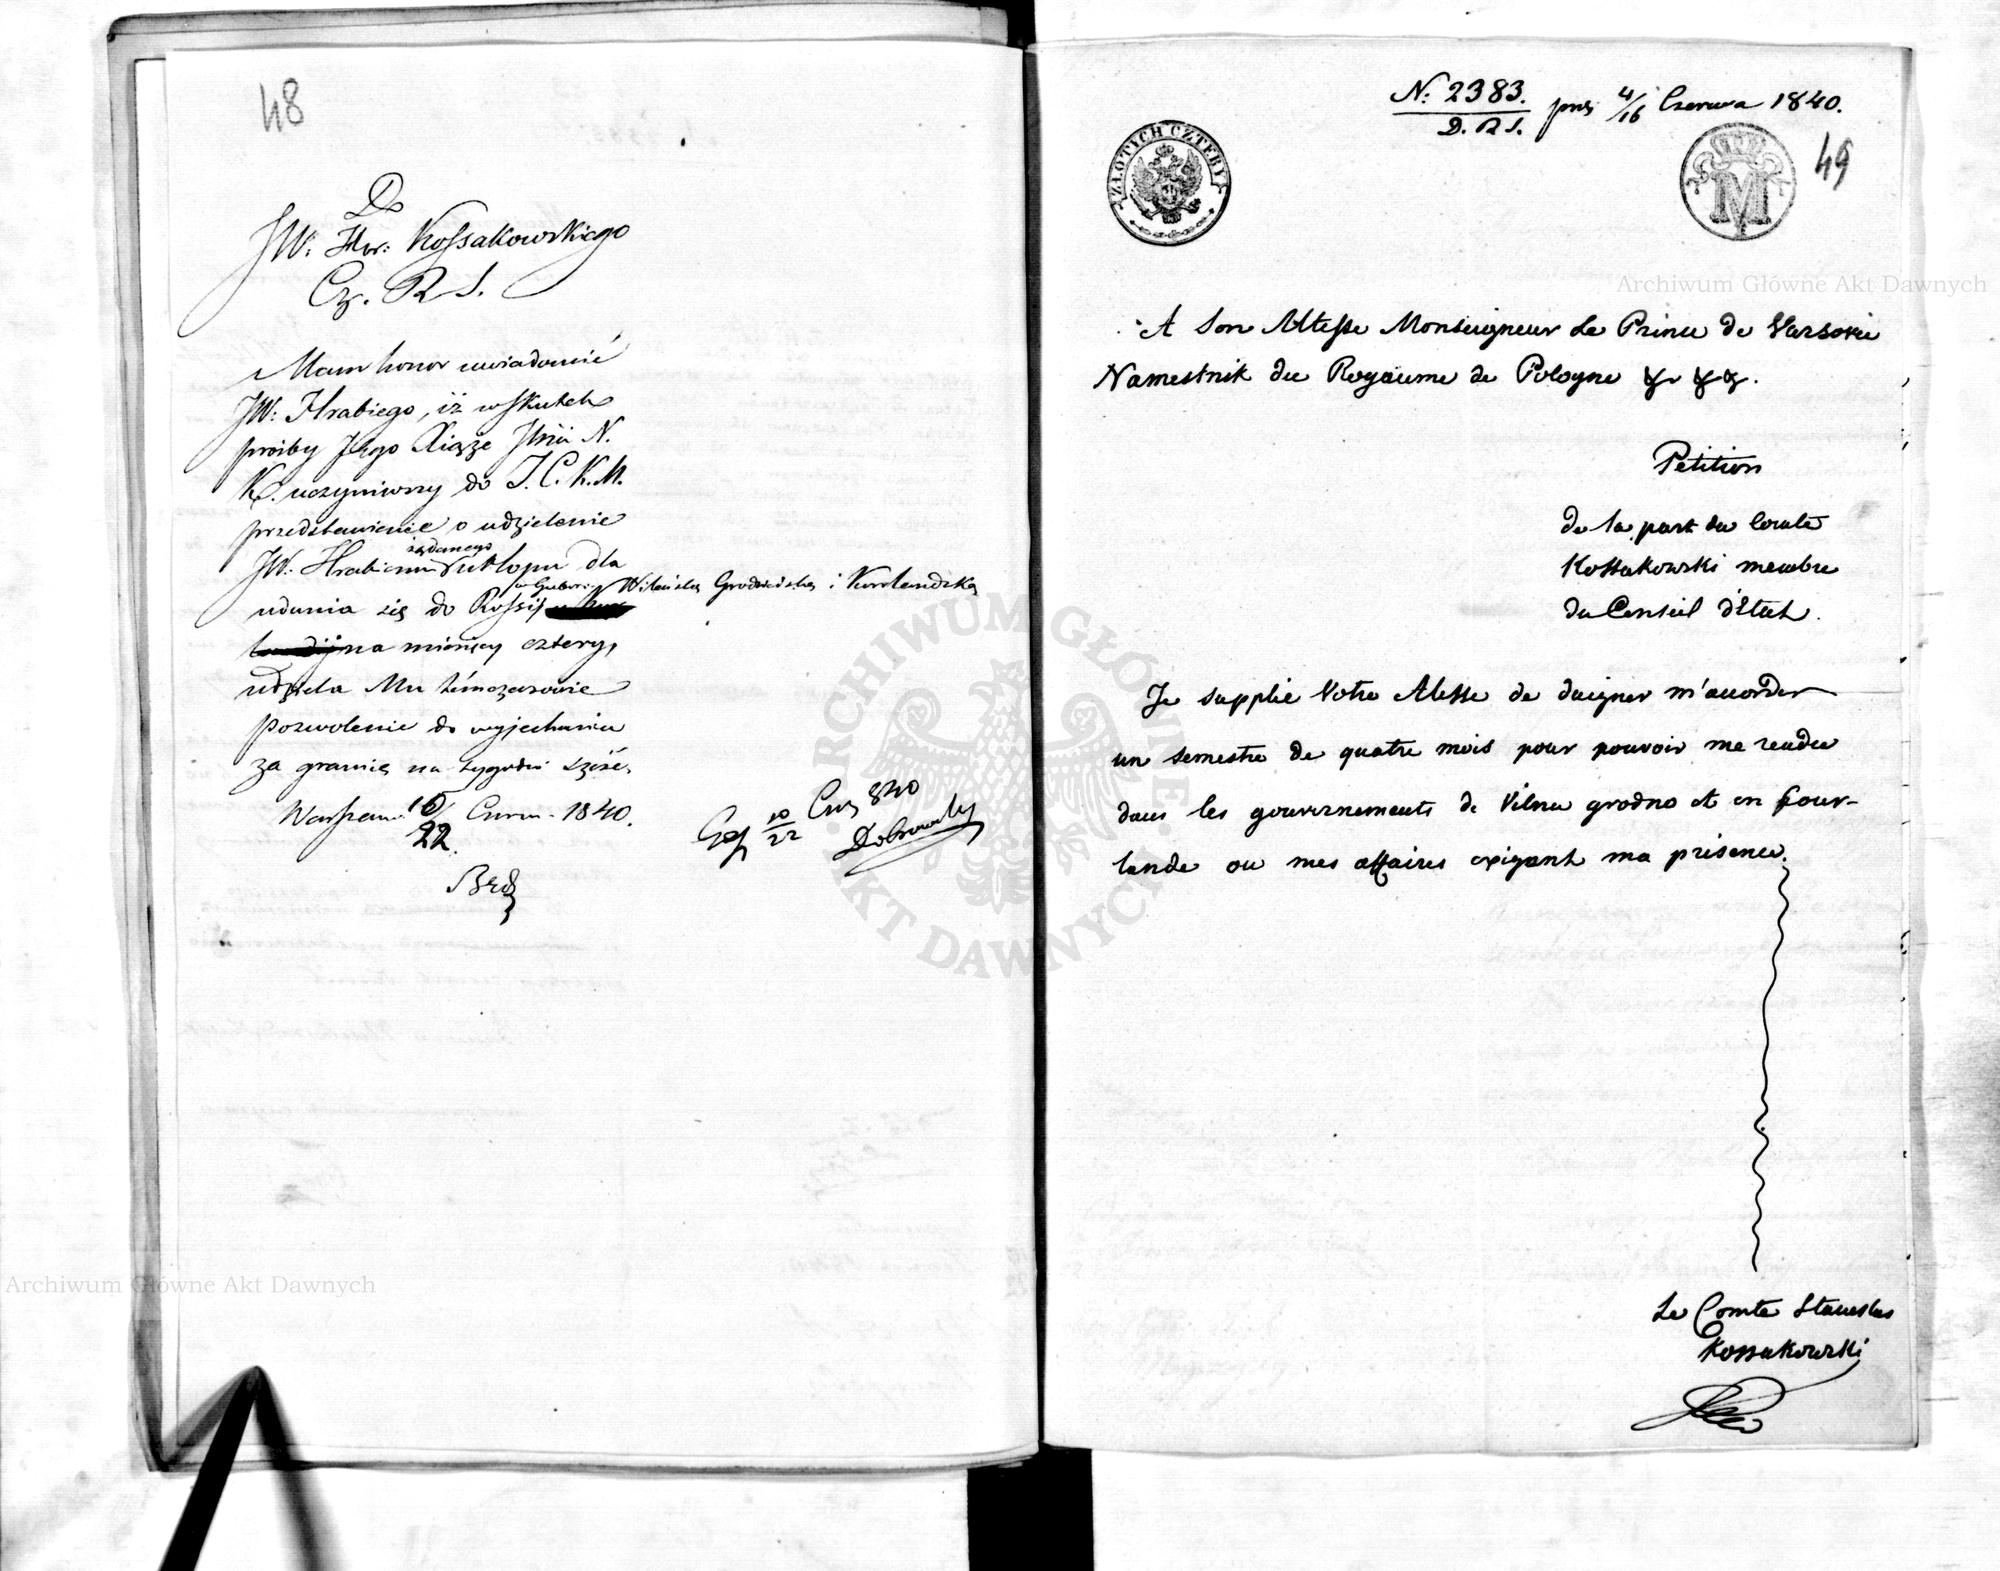 48
Do
JW: Hr: Kossakowskiego
Cz. R S.
Mam honor uwiadomić
JW: Hrabiego, iż wskutek
prośby Jego Xiąże N.
K. uczyniwszy do J. C. K. M.
przedstawienie o udzielenie
żądanego
JW. Hrabiemu urlopu dla
w Gubernij Wileńską Grodzieńską i Kurlandzką
udania się do Rossij
na miesięcy cztery,
udziela Mu tymczasowie
pozwolenie do wyjechania
za granicę na tygodni sześć.
Warszawa 10/22 Czerw. 1840.
10/22 Czer 840
Dobrowolsky
N: 2383.
D. R S. prez 4/16 Czerwca 1840.
49
ZŁOTYCH CZTERY
M
A Son Altesse Monseigneur le Prince de Varsovie
Namestnik du Royaume de Pologne & & &.
Petition
de la part du Comte
Kossakowski membre
du Conseil d'Etat.
Je supplie Votre Altesse de daigner m'accorder
un semestre de quatre mois pour pouvoir me rendre
dans les gouvernements de Vilna grodno et en Cour-
lande ou mes affaires exigent ma présence.
Le Comte Stanislas
Kossakowski
Archiwum Główne Akt Dawnych
Archiwum Główne Akt Dawnych
ARCHIWUM GŁÓWNE AKT DAWNYCH